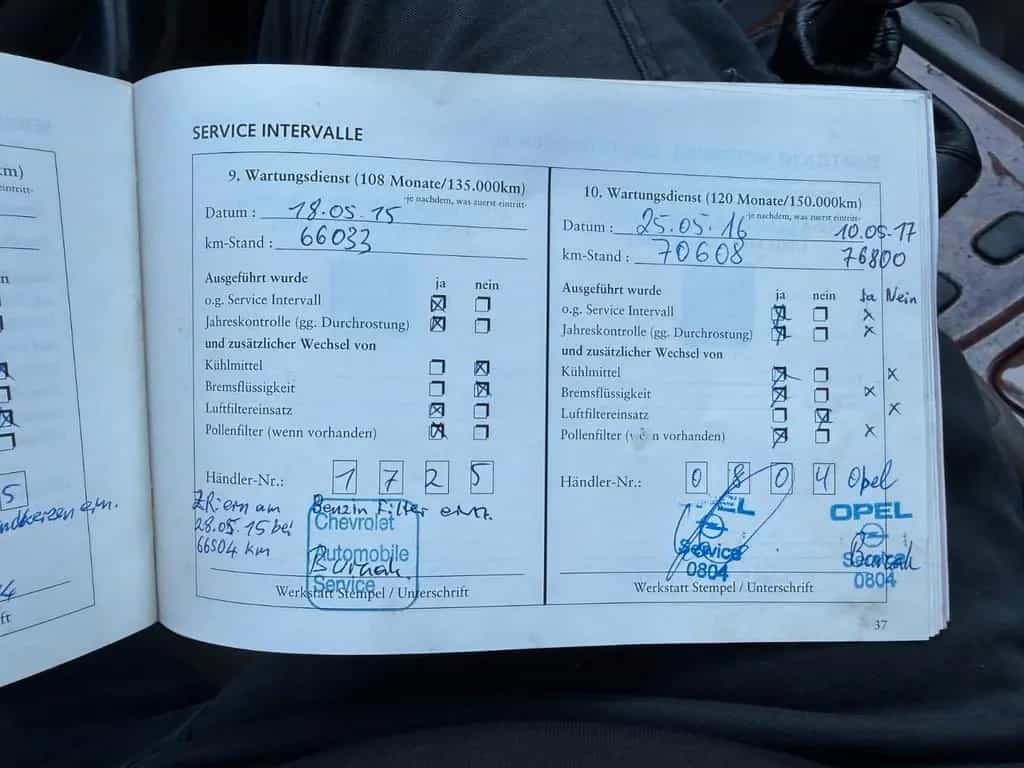 SERVICE INTERVALLE
9. Wartungsdienst (108 Monate/135.000km)
-je nachdem, was zuerst eintritt-
Datum : 18.05.15
km-Stand : 66033
Ausgeführt wurde ja nein
o.g. Service Intervall
Jahreskontrolle (gg. Durchrostung)
und zusätzlicher Wechsel von
Kühlmittel
Bremsflüssigkeit
Luftfiltereinsatz
Pollenfilter (wenn vorhanden)
Händler-Nr.: 1 7 2 5
ZRiem am
28.05.15 bei
66504 km
Benzin Filter
Chevrolet
Automobile
Service
Werkstatt Stempel / Unterschrift
10. Wartungsdienst (120 Monate/150.000km)
-je nachdem, was zuerst eintritt-
Datum : 25.05.16 10.05.17
km-Stand : 70608 76800
Ausgeführt wurde ja nein Ja Nein
o.g. Service Intervall x
Jahreskontrolle (gg. Durchrostung) x
und zusätzlicher Wechsel von
Kühlmittel x
Bremsflüssigkeit x
Luftfiltereinsatz x
Pollenfilter (wenn vorhanden) x
Händler-Nr.: 0 8 0 4 Opel
OPEL
Service
0804
OPEL
Service
0804
Werkstatt Stempel / Unterschrift
37
km)
eintritt-
n
5
4
ft